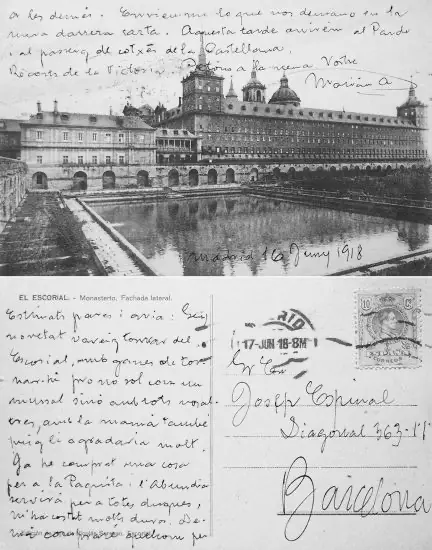 a les demés. Envieu-me lo que vos demano en la
meva darrera carta. Aquesta tarde anirem al Pardo
i al passeig de cotxes de la Castellana.
Récorts de la Victoria. Petons a la nena Vostre
Madrid 16 Juny 1918
EL ESCORIAL. - Monasterio. Fachada lateral.
Estimats pares i avia: Sens
novetat vareig tornar del
Escorial, amb ganes de tor-
narhi pro no sol com
sinó amb tots vosal-
tres, amb la mamá també
puig li agradaría molt.
Ja he comprat una cosa
per a la Paquita i l'Abundia
servirá per a totes dugues,
m'ha costat molts duros. De-
má compraré quelcom per
MADRID
17-JUN 18-8M
10 Cs
Josep Espinal
Diagonal 363-1º 1ª
Barcelona